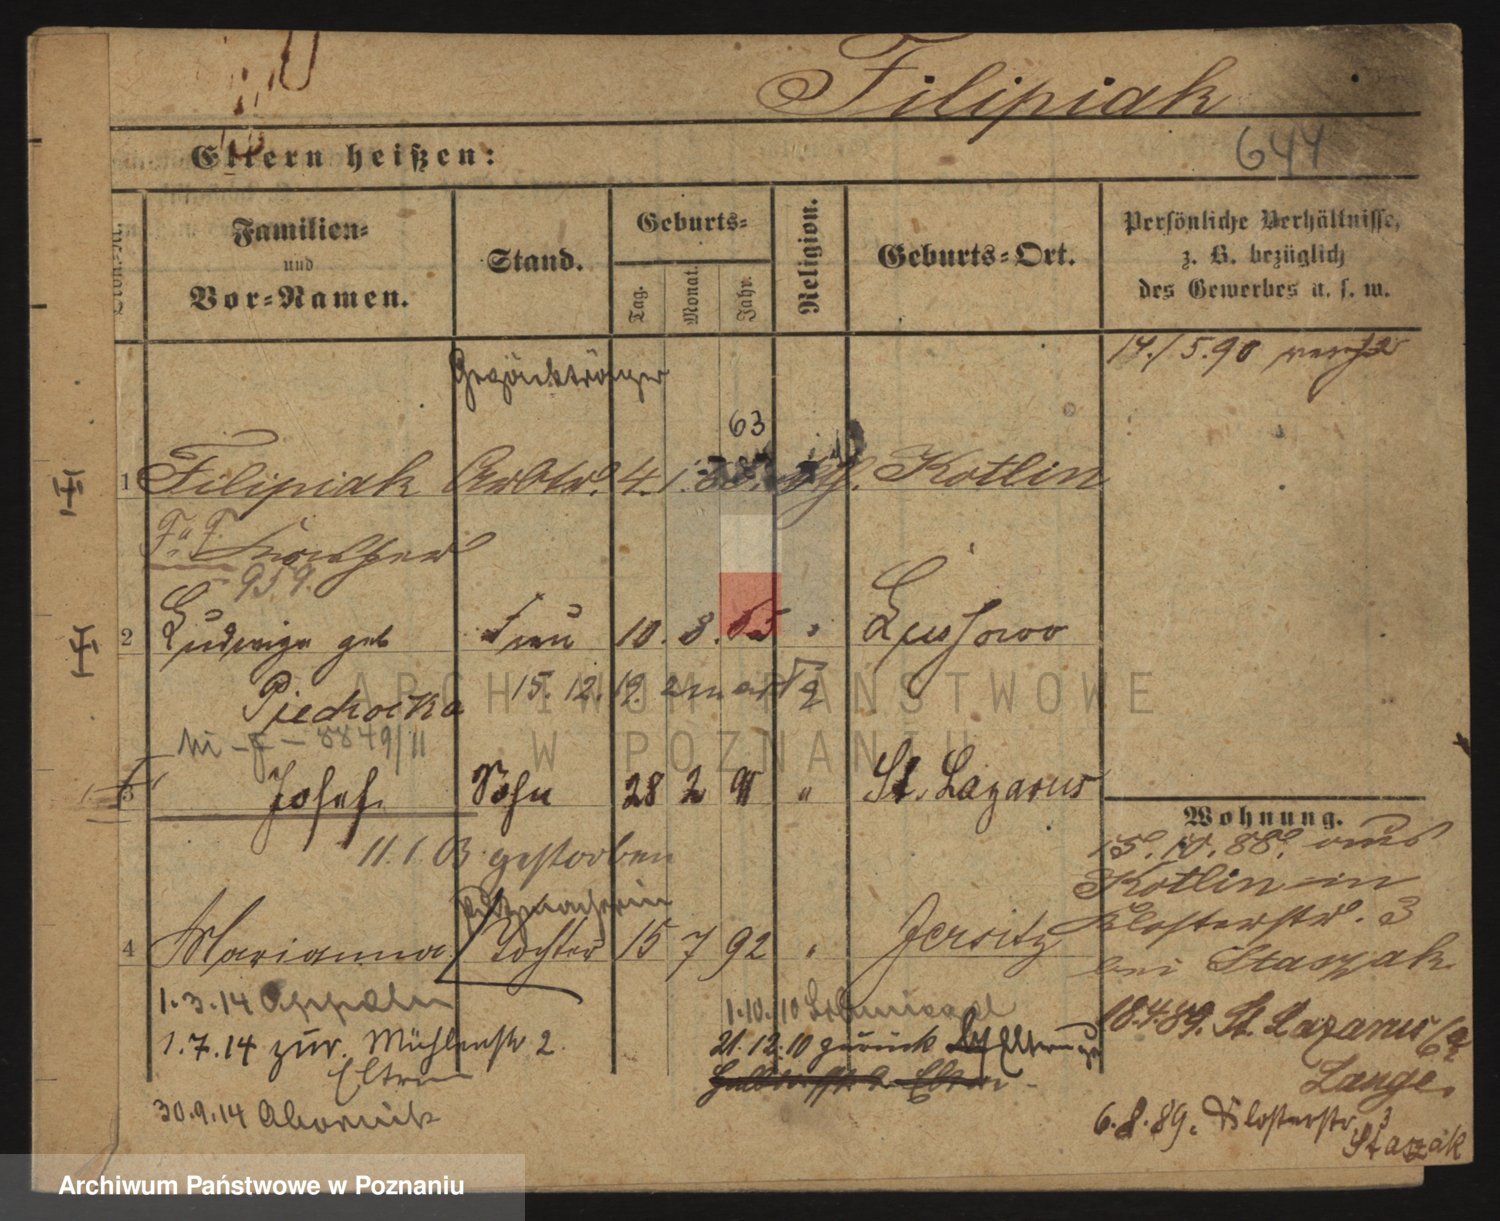 Filipiak
644
Eltern heißen:
Familien= und Vor=Namen.
Stand.
Geburts=
Tag.
Monat.
Jahr.
Religion.
Geburts=Ort.
Persönliche Verhältnisse,
z. B. bezüglich
des Gewerbes u. s. w.
14./5.90
Gepäckträger
63
1 Filipiak Arbtr. 4. 1. Kotlin
959.
2 Ludwiga geb Frau 10. 8. Lussowo
Piechocka 15. 12. 19.
8849/11
3 Josef Sohn 28 2 91 " St. Lazarus
11.1.03 gestorben
Wohnung.
15. 10. 88. aus
Kotlin in
Klosterstr. 3
bei Staszak
Putzmacherin
4 Marianna Tochter 15 7 92 " Jersitz
18.4.89. St. Lazarus
Lange.
1.3.14
1.10.10
1.7.14 zur. Mühlenstr 2.
Eltern
21.12.10 zurück Eltern
30.9.14 Abornik
6.8.89. Klosterstr. 3
Staszak
ARCHIWUM PAŃSTWOWE
W POZNANIU
Archiwum Państwowe w Poznaniu